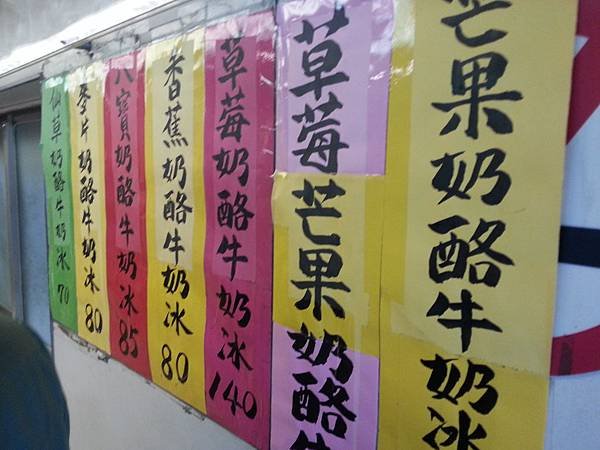 芒果奶酪牛奶冰
草莓芒果奶酪牛
草莓奶酪牛奶冰 140
香蕉奶酪牛奶冰 80
八寶奶酪牛奶冰 85
麥片奶酪牛奶冰 80
仙草奶酪牛奶冰 70